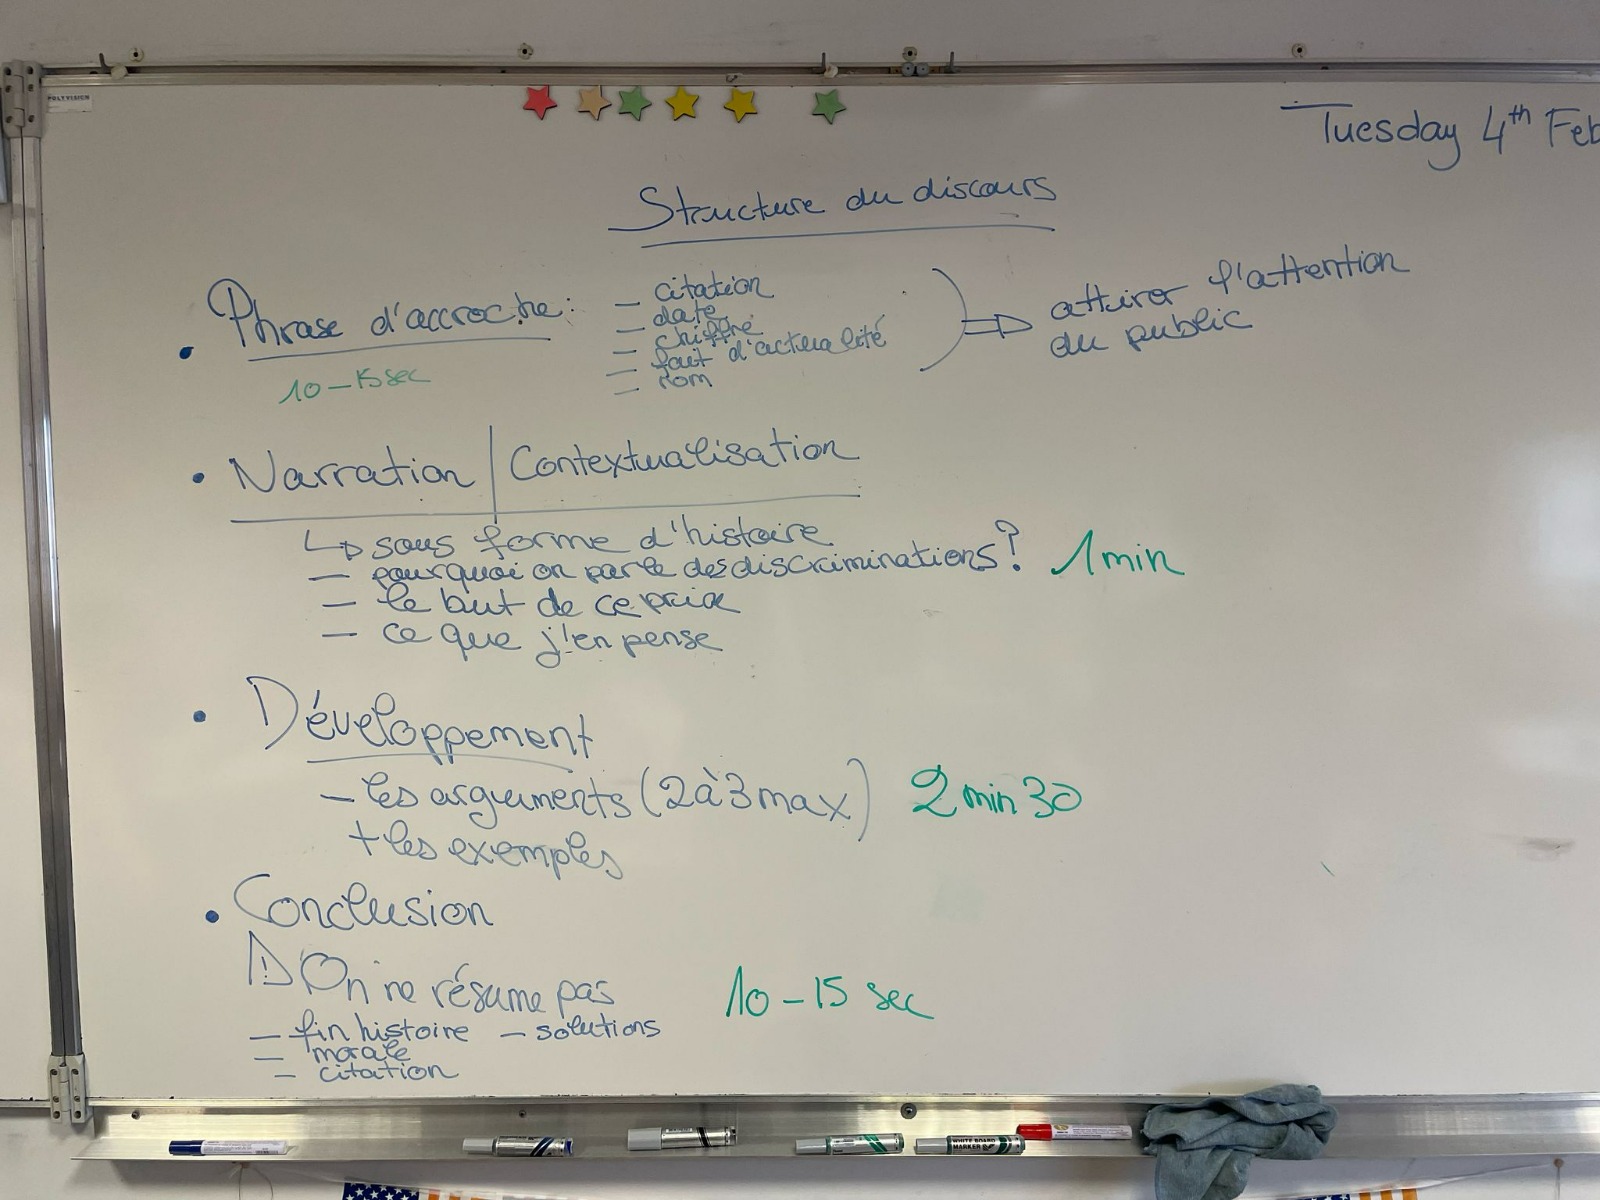 POLYVISION
Tuesday 4th Feb
Structure du discours
• Phrase d'accroche :
10-15 sec
- citation
- date
- chiffre
- fait d'actualité
- nom
⇒ attirer l'attention
du public
• Narration | Contextualisation
↳ sous forme d'histoire
- pourquoi on parle des discriminations?
1 min
- le but de ce prix
- ce que j'en pense
• Développement
- les arguments (2 à 3 max)
2 min 30
+ les exemples
• Conclusion
⚠ On ne résume pas
10-15 sec
- fin histoire - solutions
- morale
- citation
WHITE BOARD
MARKER